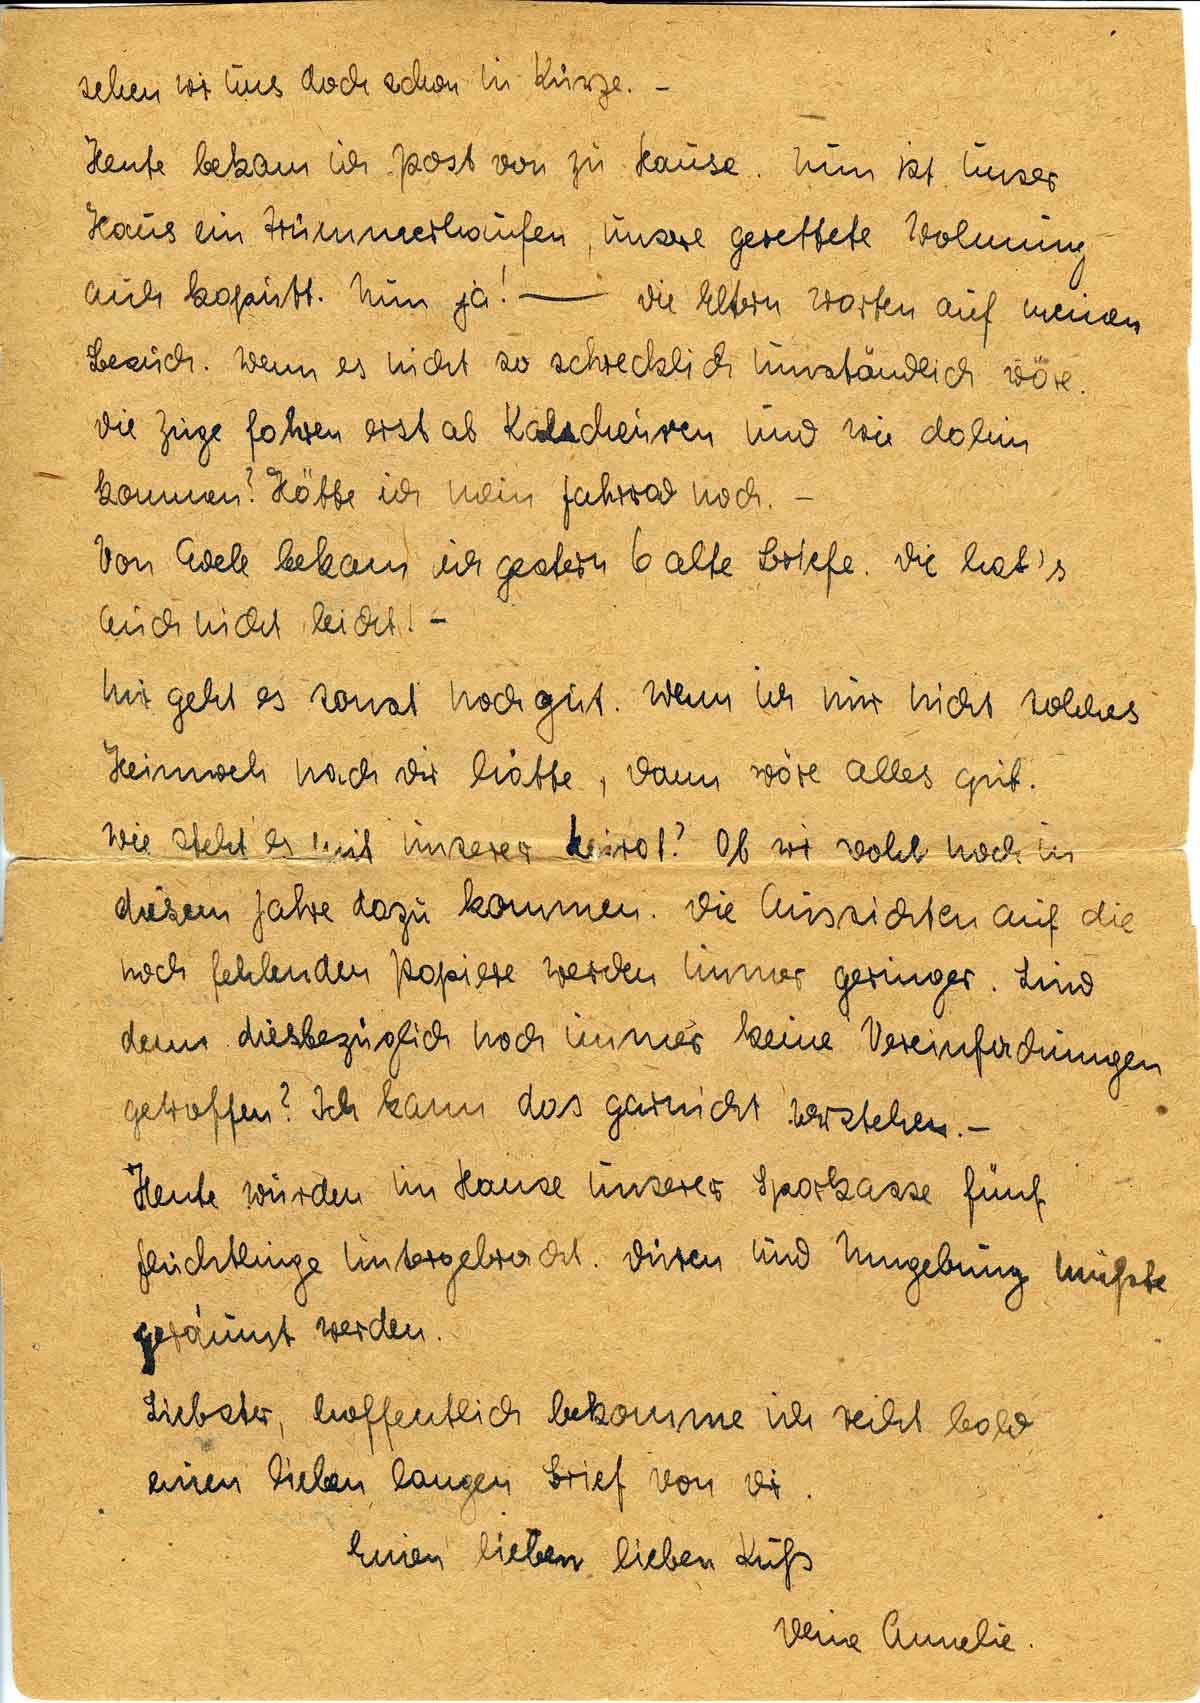 sehen wir uns doch schon in Kürze. –
Heute bekam ich Post von zu Hause. Nun ist unser
Haus ein Trümmerhaufen, unsere gerettete Wohnung
auch kaputt. Nun ja! — Die Eltern warten auf meinen
Besuch. Wenn es nicht so schrecklich umständlich wäre.
Die Züge fahren erst ab Kalscheuren und wie dahin
kommen? Hätte ich mein Fahrrad noch. –
Von bekam ich gestern 6 alte Briefe. Die hat's
auch nicht leicht! –
Mir geht es sonst noch gut. Wenn ich nur nicht solches
Heimweh nach Dir hätte, dann wäre alles gut.
Wie steht es mit unserer Heirat? Ob wir wohl noch in
diesem Jahre dazu kommen. Die Aussichten auf die
noch fehlenden Papiere werden immer geringer. Sind
denn diesbezüglich noch immer keine Vereinfachungen
getroffen? Ich kann das garnicht verstehen. –
Heute wurden im Hause unserer Sparkasse fünf
Flüchtlinge untergebracht. Düren und Umgebung mußte
geräumt werden.
Liebster, hoffentlich bekomme ich recht bald
einen lieben langen Brief von Dir.
Einen lieben lieben Kuß
Deine Annelie.